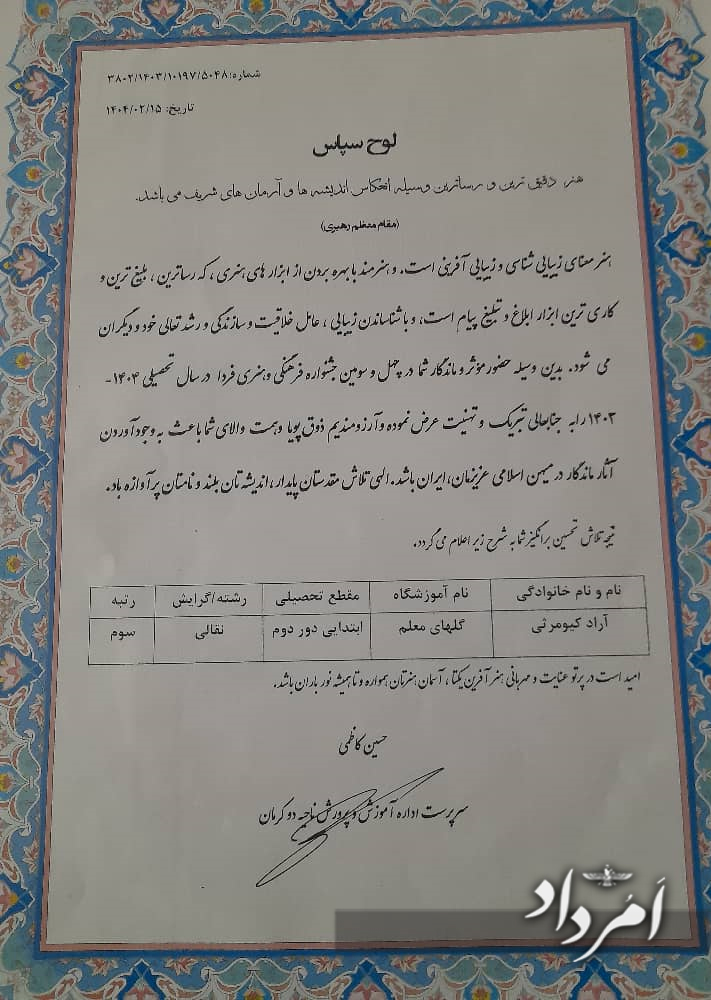 شماره: ۳۸۰۲/۱۴۰۳/۱۰۱۹۷/۵۰۴۸
تاریخ: ۱۴۰۴/۰۲/۱۵
لوح سپاس
هنر، دقیق ترین و رساترین وسیله انعکاس اندیشه ها و آرمان های شریف می باشد.
(مقام معظم رهبری)
هنر معنای زیبایی شناسی و زیبایی آفرینی است. و هنرمند با بهره بردن از ابزار های هنری، که رساترین، بلیغ ترین و
کاری ترین ابزار ابلاغ و تبلیغ پیام است، و با شناساندن زیبایی، عامل خلاقیت و سازندگی و رشد تعالی خود و دیگران
می شود. بدین وسیله حضور مؤثر و ماندگار شما در چهل و سومین جشنواره فرهنگی و هنری فردا در سال تحصیلی ۱۴۰۴-
۱۴۰۳ را به جنابعالی تبریک و تهنیت عرض نموده و آرزومندیم ذوق پویا و همت والای شما باعث به وجود آوردن
آثار ماندگار در میهن اسلامی عزیزمان، ایران باشد. الهی تلاش مقدستان پایدار، اندیشه تان بلند و نامتان پر آوازه باد.
نتیجه تلاش تحسین برانگیز شما به شرح زیر اعلام می گردد.
نام و نام خانوادگی نام آموزشگاه مقطع تحصیلی رشته/گرایش رتبه
آراد کیومرثی گلهای معلم ابتدایی دور دوم نقالی سوم
امید است در پرتو عنایت و مهربانی هنر آفرین یکتا، آسمان هنرتان همواره و تا همیشه نور باران باشد.
حسین کاظمی
سرپرست اداره آموزش و پرورش ناحیه دو کرمان
اَمُرداد